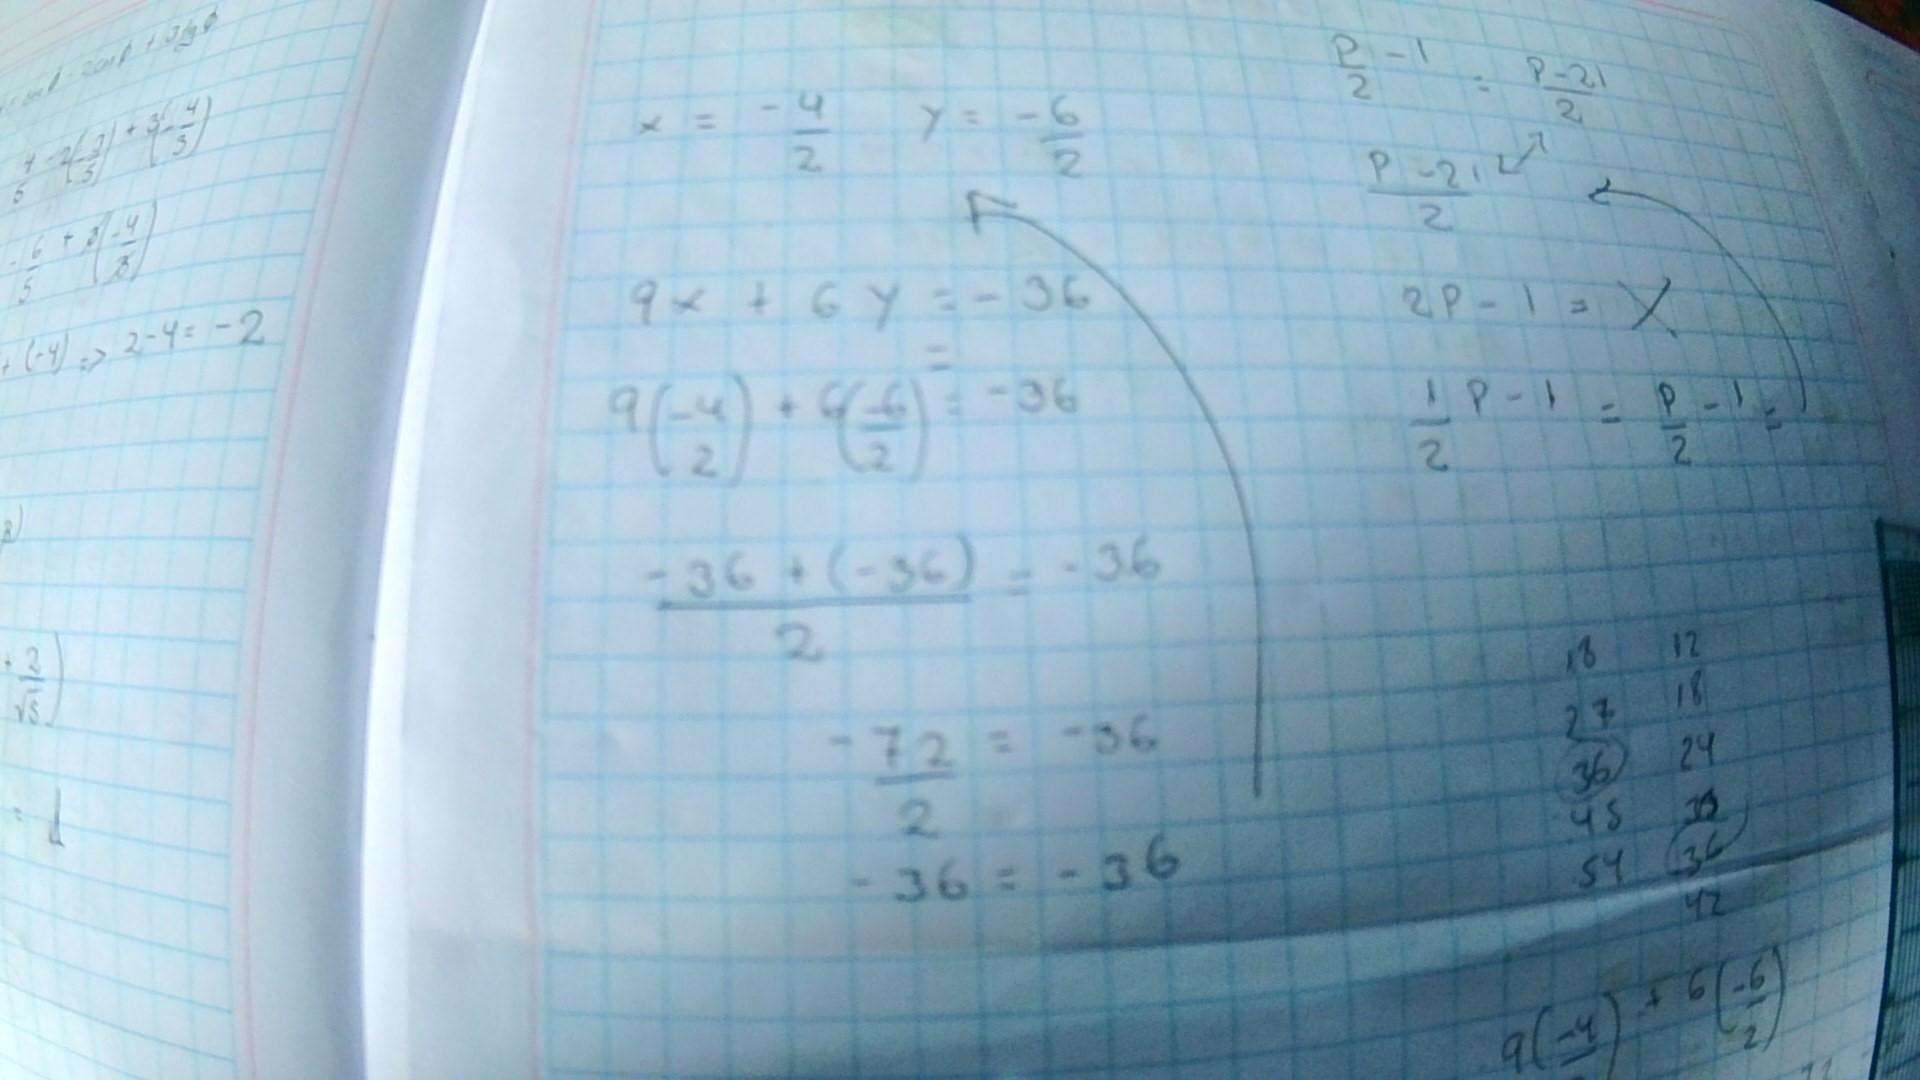 4/5 - 2(-3/5) + 3(-4/3)
-6/5 + 3(-4/3)
+ (-4) => 2-4 = -2
+ 2/√5)
= 1
x = -4/2 y = -6/2
9x + 6y = -36
=
9(-4/2) + 6(-6/2) = -36
-36 + (-36)/2 = -36
-72/2 = -36
-36 = -36
P/2 - 1 = P-21/2
P-21/2
2P - 1 = X
1/2 P - 1 = P/2 - 1 =
18 12
27 18
36 24
45
54 36
42
9(-4/ ) + 6(-6/2)